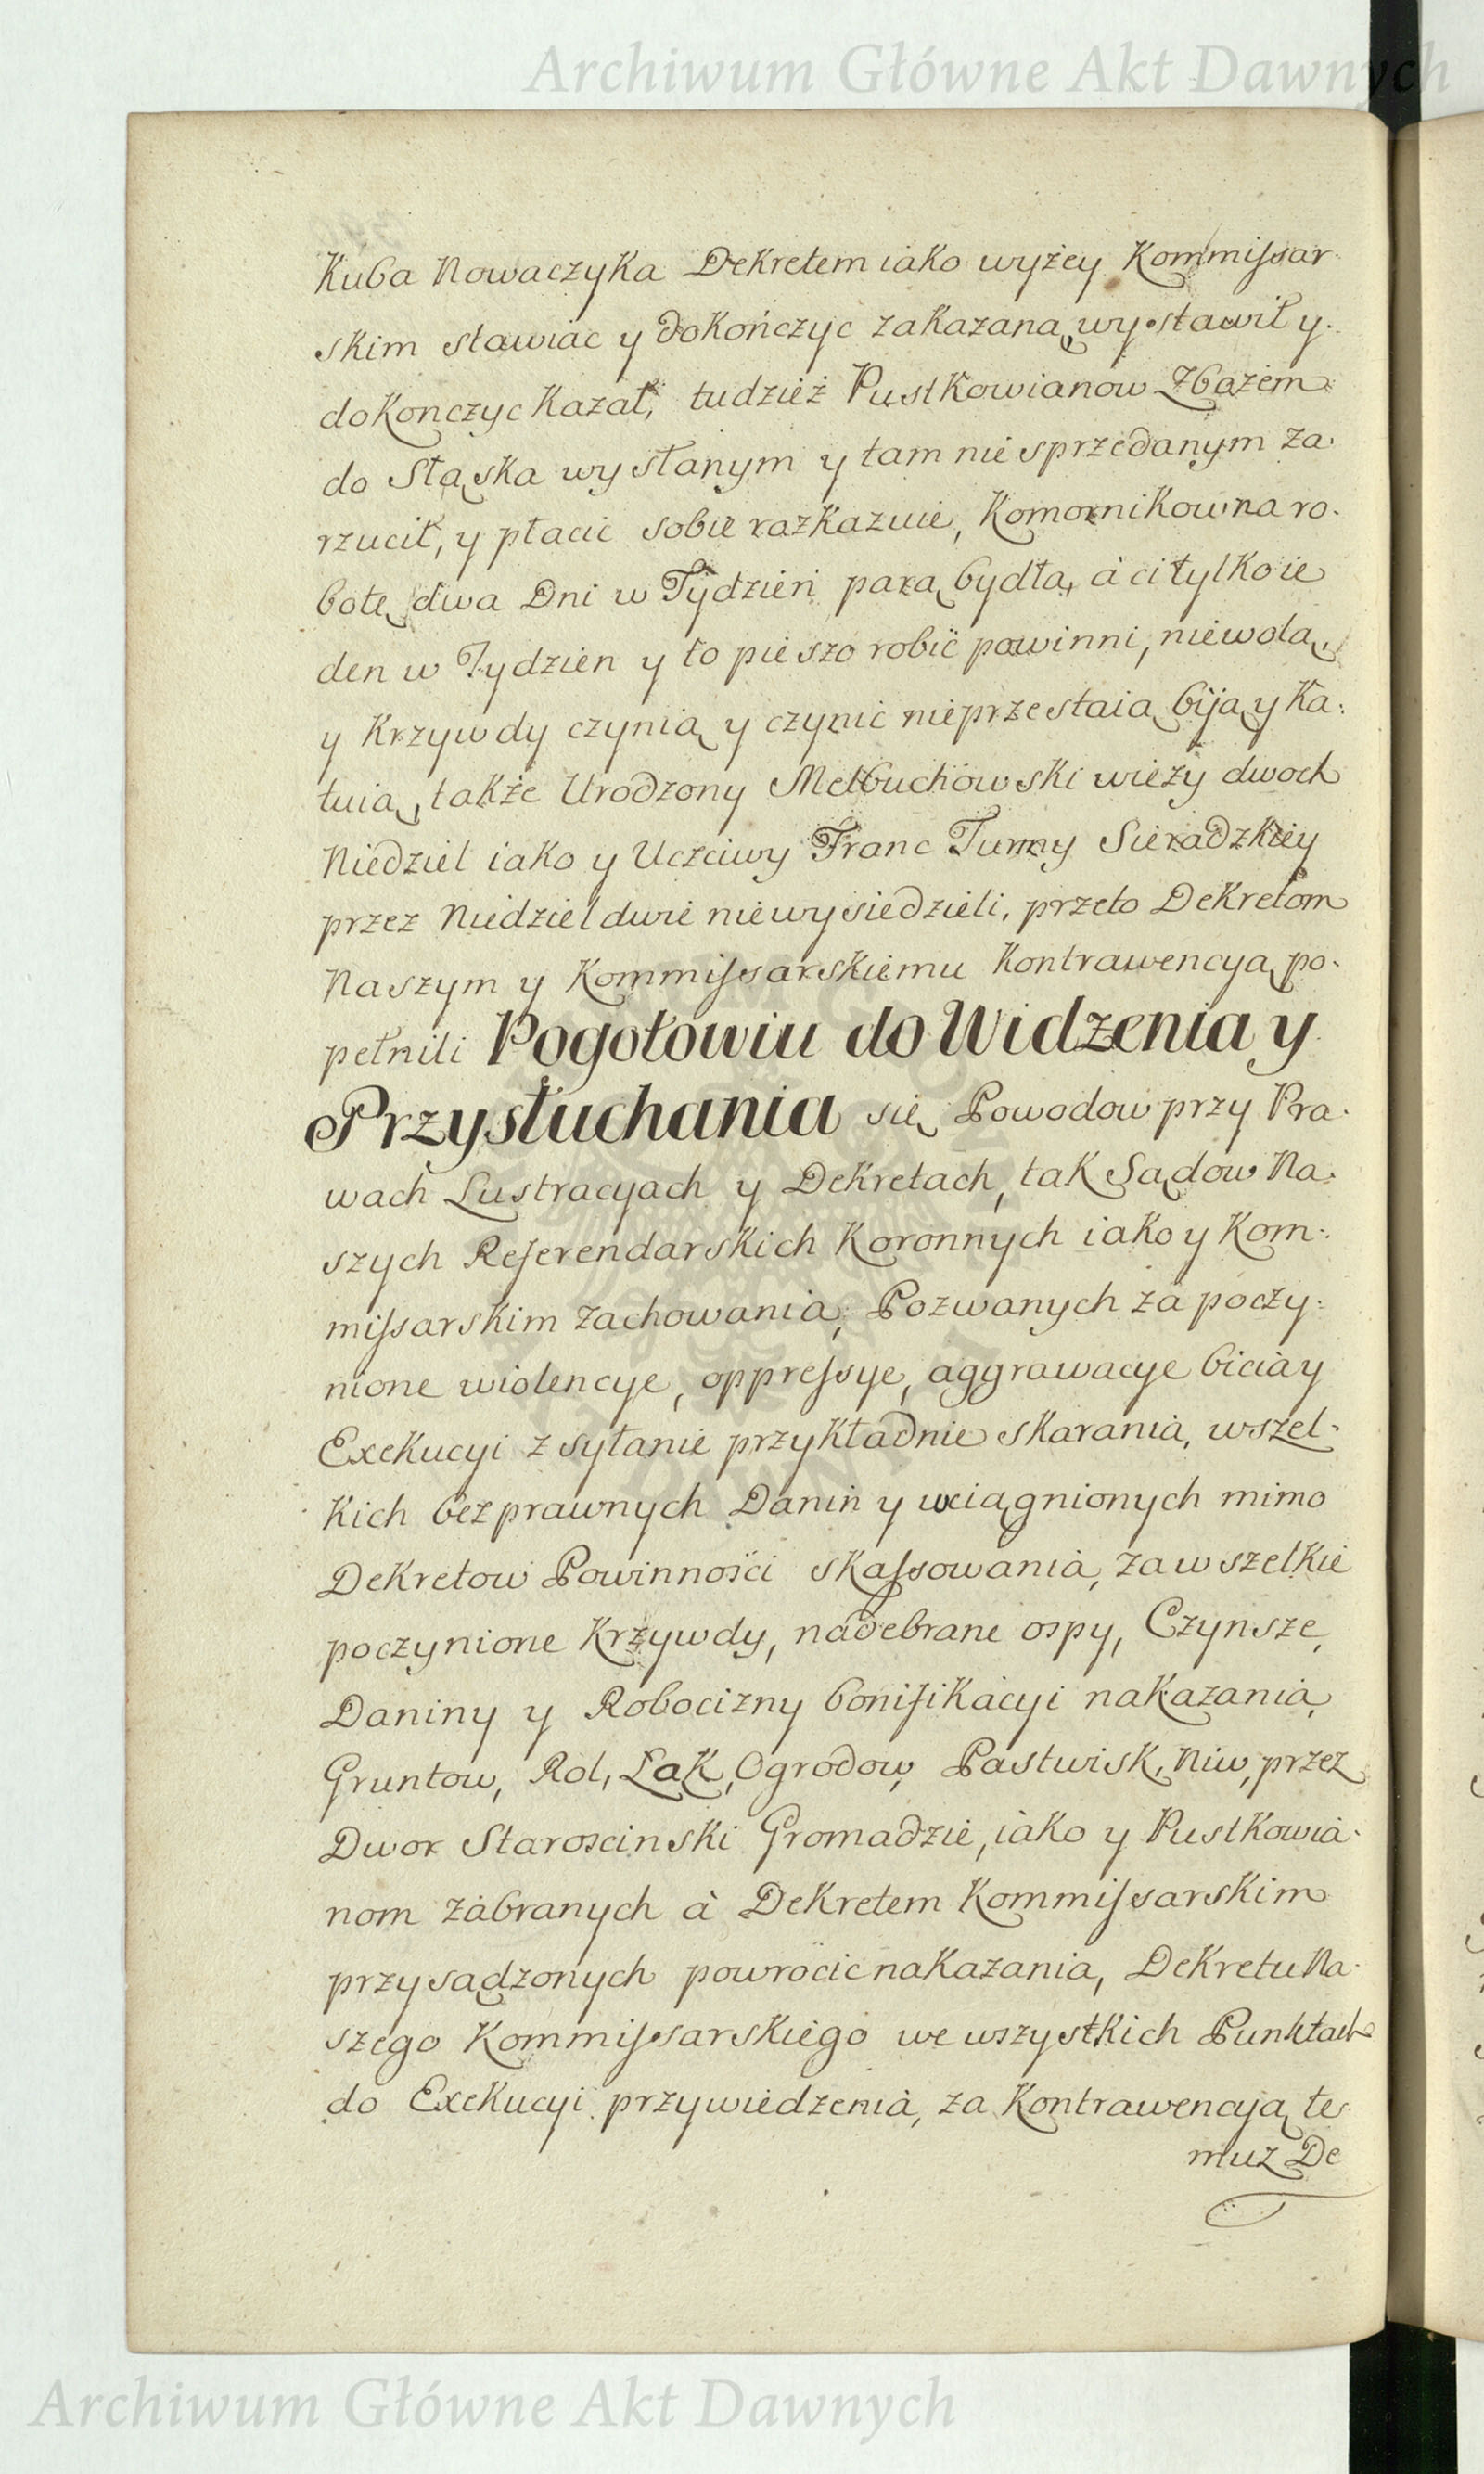 Archiwum Główne Akt Dawnych
Kuba Nowaczyka Dekretem iako wyżey Kommissar-
skim stawiac y dokończyc zakazaną wystawił y
dokonczyc kazał, tudzież Pustkowianow Zbożem
do Sląska wysłanym y tam nie sprzedanym za-
rzucił, y płacic sobie razkazuie, Komornikow na ro-
botę dwa Dni w Tydzień parą bydła, à ci tylko ie
den w Tydzien y to pieszo robić powinni, niewolą
y Krzywdy czynią y czynić nieprzestaią biją y ka-
tuią, także Urodzony Mełbuchowski wieży dwoch
Niedziel iako y Uczciwy Franc Turmy Sieradzkiey
przez Niedziel dwie niewysiedzieli, przeto Dekretom
Naszym y Kommissarskiemu Kontrawencyą po-
pełnili Pogotowiu do Widzenia y
Przysłuchania się Powodow przy Pra-
wach Lustracyach y Dekretach, tak Sądow Na-
szych Referendarskich Koronnych iako y Kom-
missarskim zachowania, Pozwanych za poczy-
nione wiolencye, oppressye, aggrawacye bicia y
Exekucyi zsyłanie przykładnie skarania, wszel-
kich bezprawnych Danin y wciągnionych mimo
Dekretow Powinności skassowania, za wszelkie
poczynione Krzywdy, nadebrane ospy, Czynsze,
Daniny y Robocizny bonifikacyi nakazania,
Gruntow, Rol, Łąk, Ogrodow, Pastwisk, Niw, przez
Dwor Starościnski Gromadzie, iako y Pustkowia-
nom zabranych à Dekretem Kommissarskim
przysądzonych powrocic nakazania, Dekretu Na-
szego Kommissarskiego we wszystkich Punktach
do Exekucyi przywiedzenia, za Kontrawencyą te-
muz De
Archiwum Główne Akt Dawnych